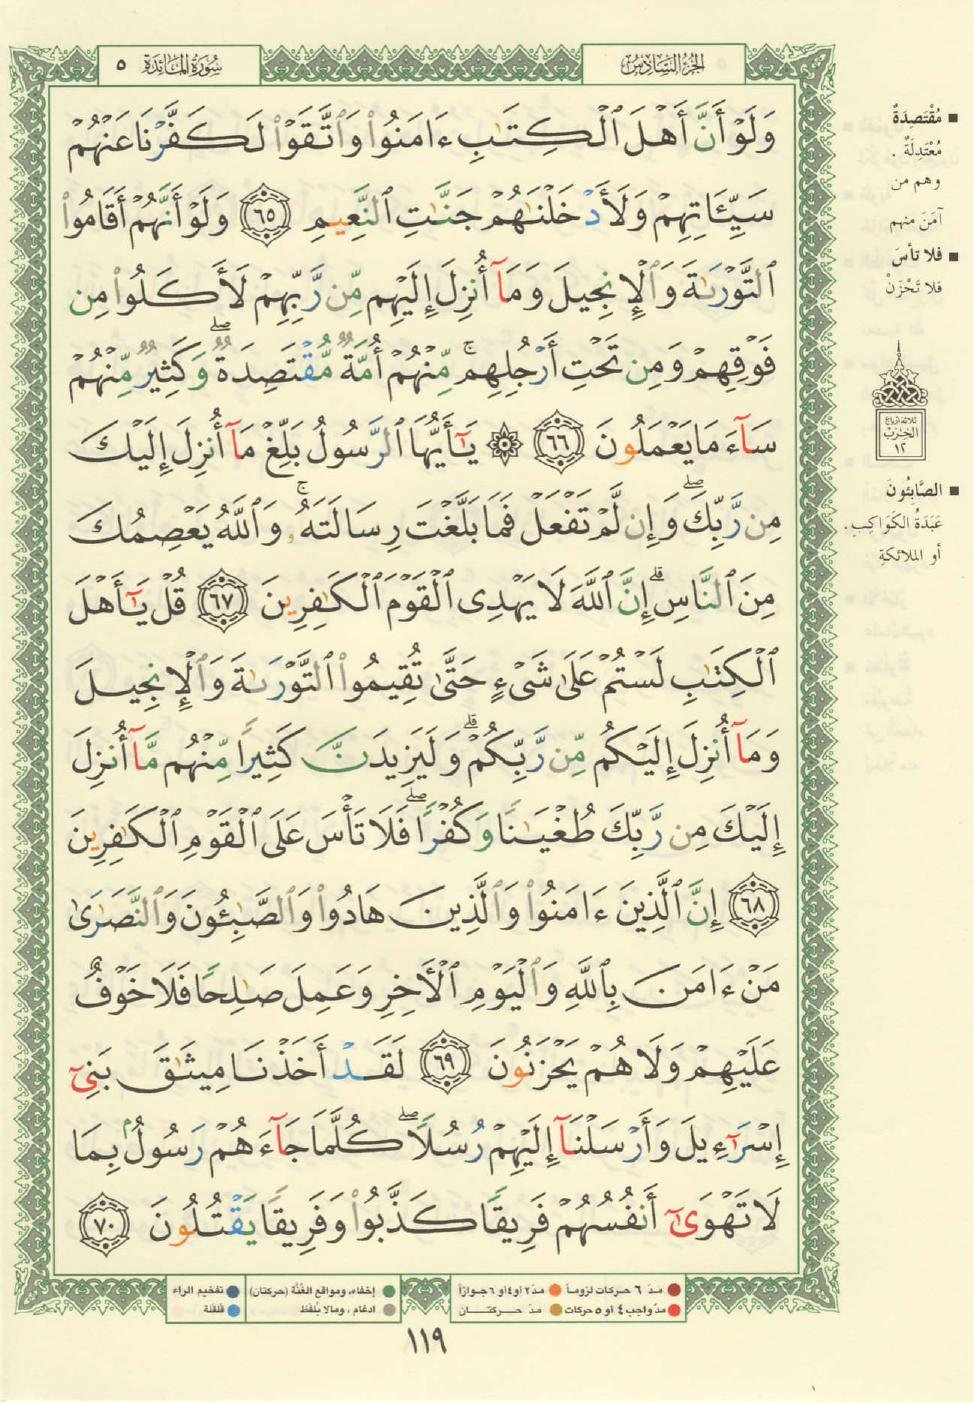 سُورَةُ المَائدة ٥
الجُزءُ السَّادِسُ
وَلَوْ أَنَّ أَهْلَ ٱلْكِتَٰبِ ءَامَنُوا۟ وَٱتَّقَوْا۟ لَكَفَّرْنَا عَنْهُمْ
سَيِّـَٔاتِهِمْ وَلَأَدْخَلْنَٰهُمْ جَنَّٰتِ ٱلنَّعِيمِ ٦٥ وَلَوْ أَنَّهُمْ أَقَامُوا۟
ٱلتَّوْرَىٰةَ وَٱلْإِنجِيلَ وَمَآ أُنزِلَ إِلَيْهِم مِّن رَّبِّهِمْ لَأَكَلُوا۟ مِن
فَوْقِهِمْ وَمِن تَحْتِ أَرْجُلِهِم ۚ مِّنْهُمْ أُمَّةٌ مُّقْتَصِدَةٌ ۖ وَكَثِيرٌ مِّنْهُمْ
سَآءَ مَا يَعْمَلُونَ ٦٦ ۞ يَٰٓأَيُّهَا ٱلرَّسُولُ بَلِّغْ مَآ أُنزِلَ إِلَيْكَ
مِن رَّبِّكَ ۖ وَإِن لَّمْ تَفْعَلْ فَمَا بَلَّغْتَ رِسَالَتَهُۥ ۚ وَٱللَّهُ يَعْصِمُكَ
مِنَ ٱلنَّاسِ ۗ إِنَّ ٱللَّهَ لَا يَهْدِى ٱلْقَوْمَ ٱلْكَٰفِرِينَ ٦٧ قُلْ يَٰٓأَهْلَ
ٱلْكِتَٰبِ لَسْتُمْ عَلَىٰ شَىْءٍ حَتَّىٰ تُقِيمُوا۟ ٱلتَّوْرَىٰةَ وَٱلْإِنجِيلَ
وَمَآ أُنزِلَ إِلَيْكُم مِّن رَّبِّكُمْ ۗ وَلَيَزِيدَنَّ كَثِيرًا مِّنْهُم مَّآ أُنزِلَ
إِلَيْكَ مِن رَّبِّكَ طُغْيَٰنًا وَكُفْرًا ۖ فَلَا تَأْسَ عَلَى ٱلْقَوْمِ ٱلْكَٰفِرِينَ
٦٨ إِنَّ ٱلَّذِينَ ءَامَنُوا۟ وَٱلَّذِينَ هَادُوا۟ وَٱلصَّٰبِـُٔونَ وَٱلنَّصَٰرَىٰ
مَنْ ءَامَنَ بِٱللَّهِ وَٱلْيَوْمِ ٱلْـَٔاخِرِ وَعَمِلَ صَٰلِحًا فَلَا خَوْفٌ
عَلَيْهِمْ وَلَا هُمْ يَحْزَنُونَ ٦٩ لَقَدْ أَخَذْنَا مِيثَٰقَ بَنِىٓ
إِسْرَٰٓءِيلَ وَأَرْسَلْنَآ إِلَيْهِمْ رُسُلًا ۖ كُلَّمَا جَآءَهُمْ رَسُولٌۢ بِمَا
لَا تَهْوَىٰٓ أَنفُسُهُمْ فَرِيقًا كَذَّبُوا۟ وَفَرِيقًا يَقْتُلُونَ ٧٠
■ مُقْتَصِدَةٌ
مُعْتَدِلَةٌ .
وهم من
آمَنَ منهم
■ فلا تأسَ
فلا تَحْزَنْ
ثلاثة أرباع
الحِزْبُ
١٢
■ الصَّابئُونَ
عَبَدَةُ الكَوَاكِبِ .
أو الملائكةِ
● مدّ ٦ حركات لزوماً ● مدّ ٢ أو ٤ أو ٦ جوازاً
● مدّ واجب ٤ أو ٥ حركات ● مدّ حركتـــان
● إخفاء، ومواقع الغُنَّة (حركتان)
● ادغام ، ومالا يُلفَظ
● تفخيم الراء
● قلقلة
١١٩